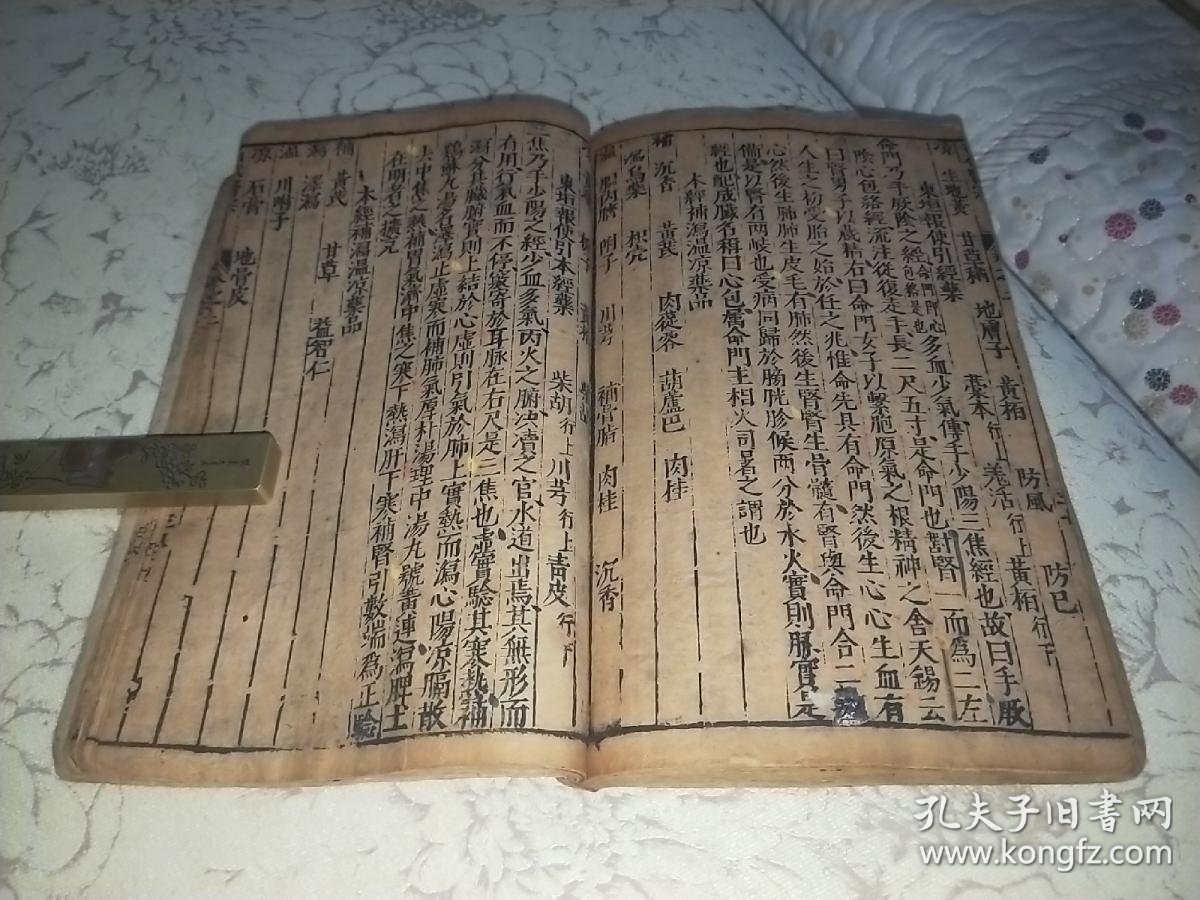 涼 生地黃 甘草稍 地膚子 黃柏 防風 防已
東垣報使引經藥 藁本行上 羗活行上 黃栢行下
命門乃手厥陰之經包絡是也命門即心多血少氣傳手少陽三焦經也故曰手厥
陰心包落經流注從復走手長二尺五寸是命門也對腎一而爲二左
曰腎男子以藏精右曰命門女子以繫胞原氣之根精神之舍天錫云
人生之初受胎之始於任之兆惟命先具有命門然後生心心生血有
心然後生肺肺生皮毛有肺然後生腎腎生骨髓有腎與命門合二
備是以腎有兩岐也受病同歸於膀胱胗候兩分於水火實則脉實是
經也配成臟名稱曰心包屬命門主相火司署之謂也
本經補瀉溫凉藥品
補 沉香 黃芪 肉蓯蓉 葫蘆巴 肉桂
瀉 烏藥 枳壳
溫 附子 川芎 補骨脂 肉桂 沉香
東垣報使引本經藥 柴胡行上 川芎行上 青皮行下
三焦乃手少陽之經少血多氣丙火之腑决瀆之官水道出焉其無形而
有用行氣血而不停褒寄於耳脉在右尺是三焦也虛實驗其寒熱補
瀉分其臟腑實則上結於心虛則引氣於肺上實熱而瀉心陽凉膈散
鷄蘇丸湯名是瀉止虛寒而補肺氣厚朴湯理中湯九號黃連瀉脾土
去中焦之熱補胃氣濟中焦之寒下熱瀉肝下寒補腎引數端爲正驗
在明者之擴充
本經補瀉溫凉藥品
補 黃芪 甘草 益智仁
瀉 澤瀉
溫 川附子
凉 石膏 地骨皮
孔夫子旧书网
www.kongfz.com